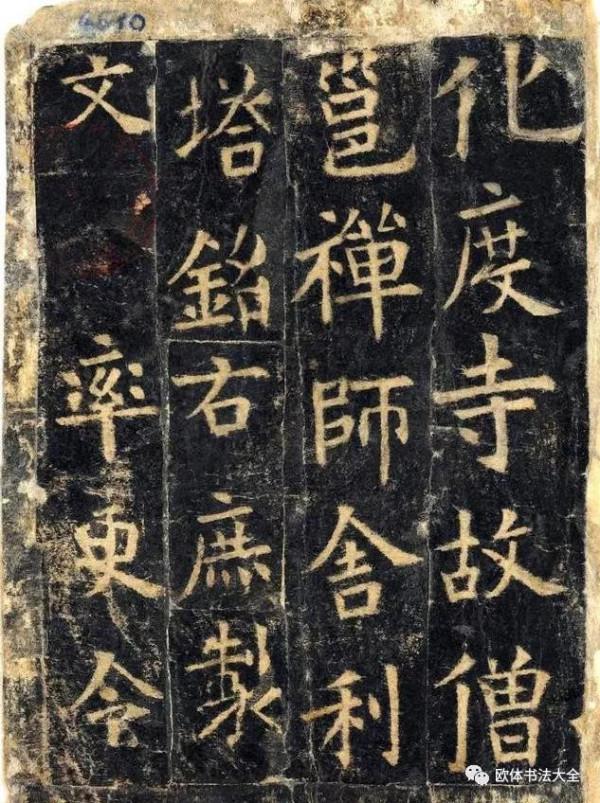 4610
化度寺故僧
邕禪師舍利
塔銘右庶製
文 率更令
欧体书法大全